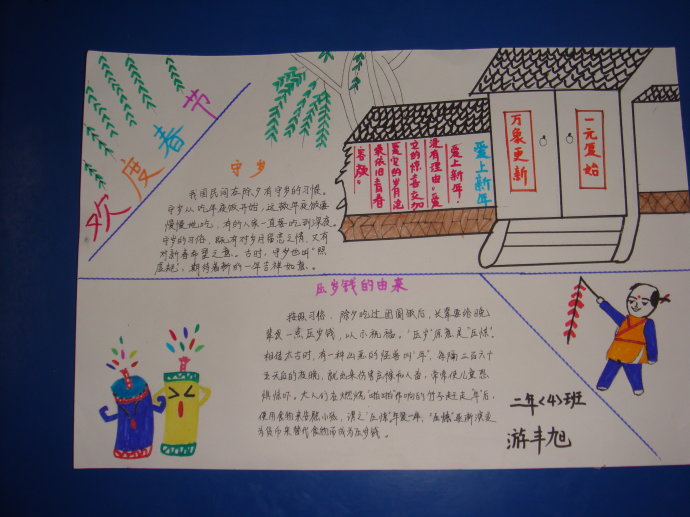 欢度春节
守岁
我国民间在除夕有守岁的习惯。
守岁从吃年夜饭开始，这顿年夜饭要
慢慢地吃，有的人家一直要吃到深夜。
守岁的习俗，既有对岁月留恋之情，又有
对新春希望之意。古时，守岁也叫“照
虚耗”，期待着新的一年吉祥如意。
爱上新年
爱上新年，
没有理由。爱
它的惊喜交加
爱它的岁月流
来依旧青春
容颜。
万象更新
一元复始
压岁钱的由来
按照习俗，除夕吃过团圆饭后，长辈要给晚
辈发一点压岁钱，以示祝福。“压岁”原意是“压惊”。
相传太古时，有一种凶恶的怪兽叫“年”，每隔三百六十
五天后的夜晚，就出来伤害和人畜，常常使儿童恐
惧惊吓。大人们在燃烧“啪啪”作响的竹子赶走“年”后，
便用食物来安慰小孩，谓之“压惊”。年复一年，“压惊”逐渐演变
为货币来替代食物而成为压岁钱。
二年<4>班
游丰旭